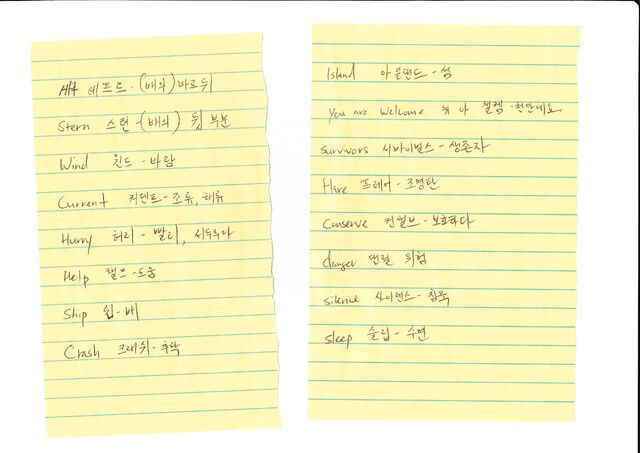 Aft 에프트 - (배의) 바로 뒤
Stern 스턴 - (배의) 뒷 부분
Wind 윈드 - 바람
Current 커런트 - 조류, 해류
Hurry 허리 - 빨리, 서두르다
Help 헬프 - 도움
Ship 쉽 - 배
Crash 크래쉬 - 추락
Island 아일랜드 - 섬
You are welcome 유 아 웰컴 - 천만네요.
Survivors 서바이벌스 - 생존자
Flare 프레어 - 조명탄
Conserve 컨설브 - 보호하다
danger 댄절 위험
silence 사이렌스 - 침묵
sleep 슬립 - 수면